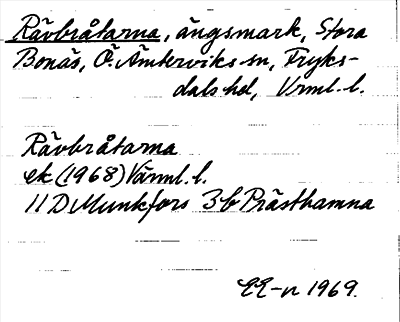 Rävbråtarna, ängsmark, Stora
Bonäs, Ö. Ämterviks sn, Fryks-
dals hd, Vrml. l.
Rävbråtarna
ek (1968) Värml. l.
11 D Munkfors 3b Prästhamna
EE-n 1969.